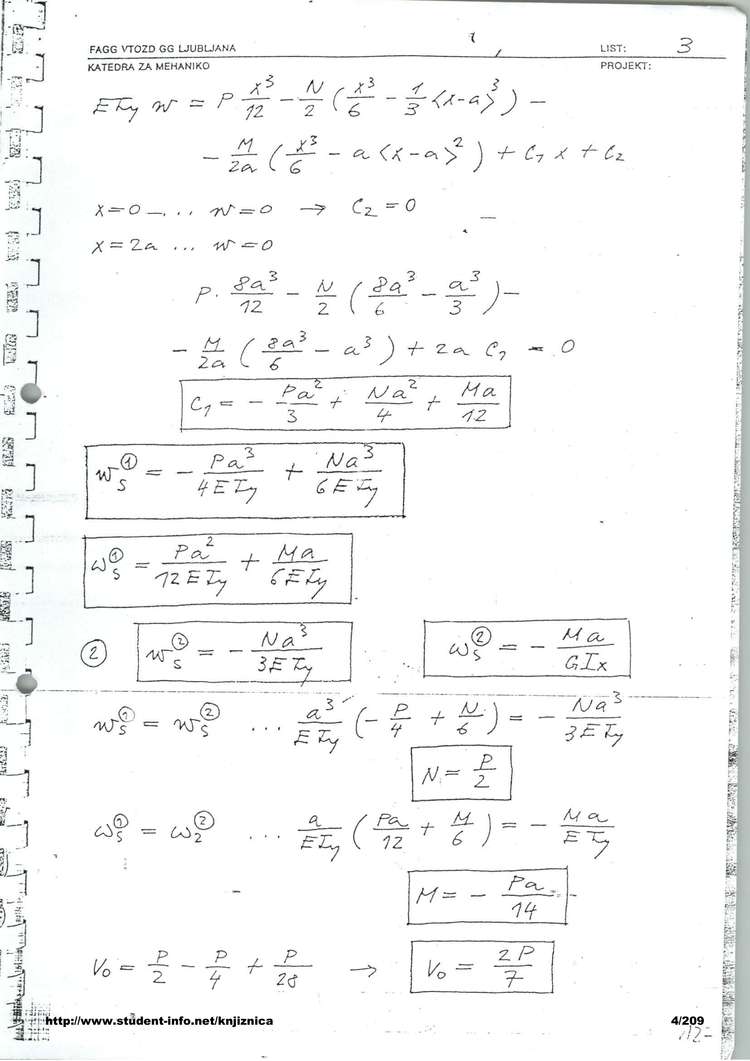 FAGG VTOZD GG LJUBLJANA LIST: 3
KATEDRA ZA MEHANIKO PROJEKT:
EIy w = P x³/12 - N/2 (x³/6 - 1/3 <x-a>³) -
- M/2a (x³/6 - a <x-a>²) + C₁ x + C₂
x=0 -... w=0 → C₂=0
x=2a ... w=0
P · 8a³/12 - N/2 (8a³/6 - a³/3) -
- M/2a (8a³/6 - a³) + 2a C₁ = 0
C₁ = - Pa²/3 + Na²/4 + Ma/12
wₛ① = - Pa³/4EIy + Na³/6EIy
ωₛ① = Pa²/12EIy + Ma/6EIy
② wₛ② = - Na³/3EIy ωₛ② = - Ma/GIx
wₛ① = wₛ② ... a³/EIy (- P/4 + N/6) = - Na³/3EIy
N = P/2
ωₛ① = ω₂② ... a/EIy (Pa/12 + M/6) = - Ma/EIy
M = - Pa/14
V₀ = P/2 - P/4 + P/28 → V₀ = 2P/7
http://www.student-info.net/knjiznica 4/209